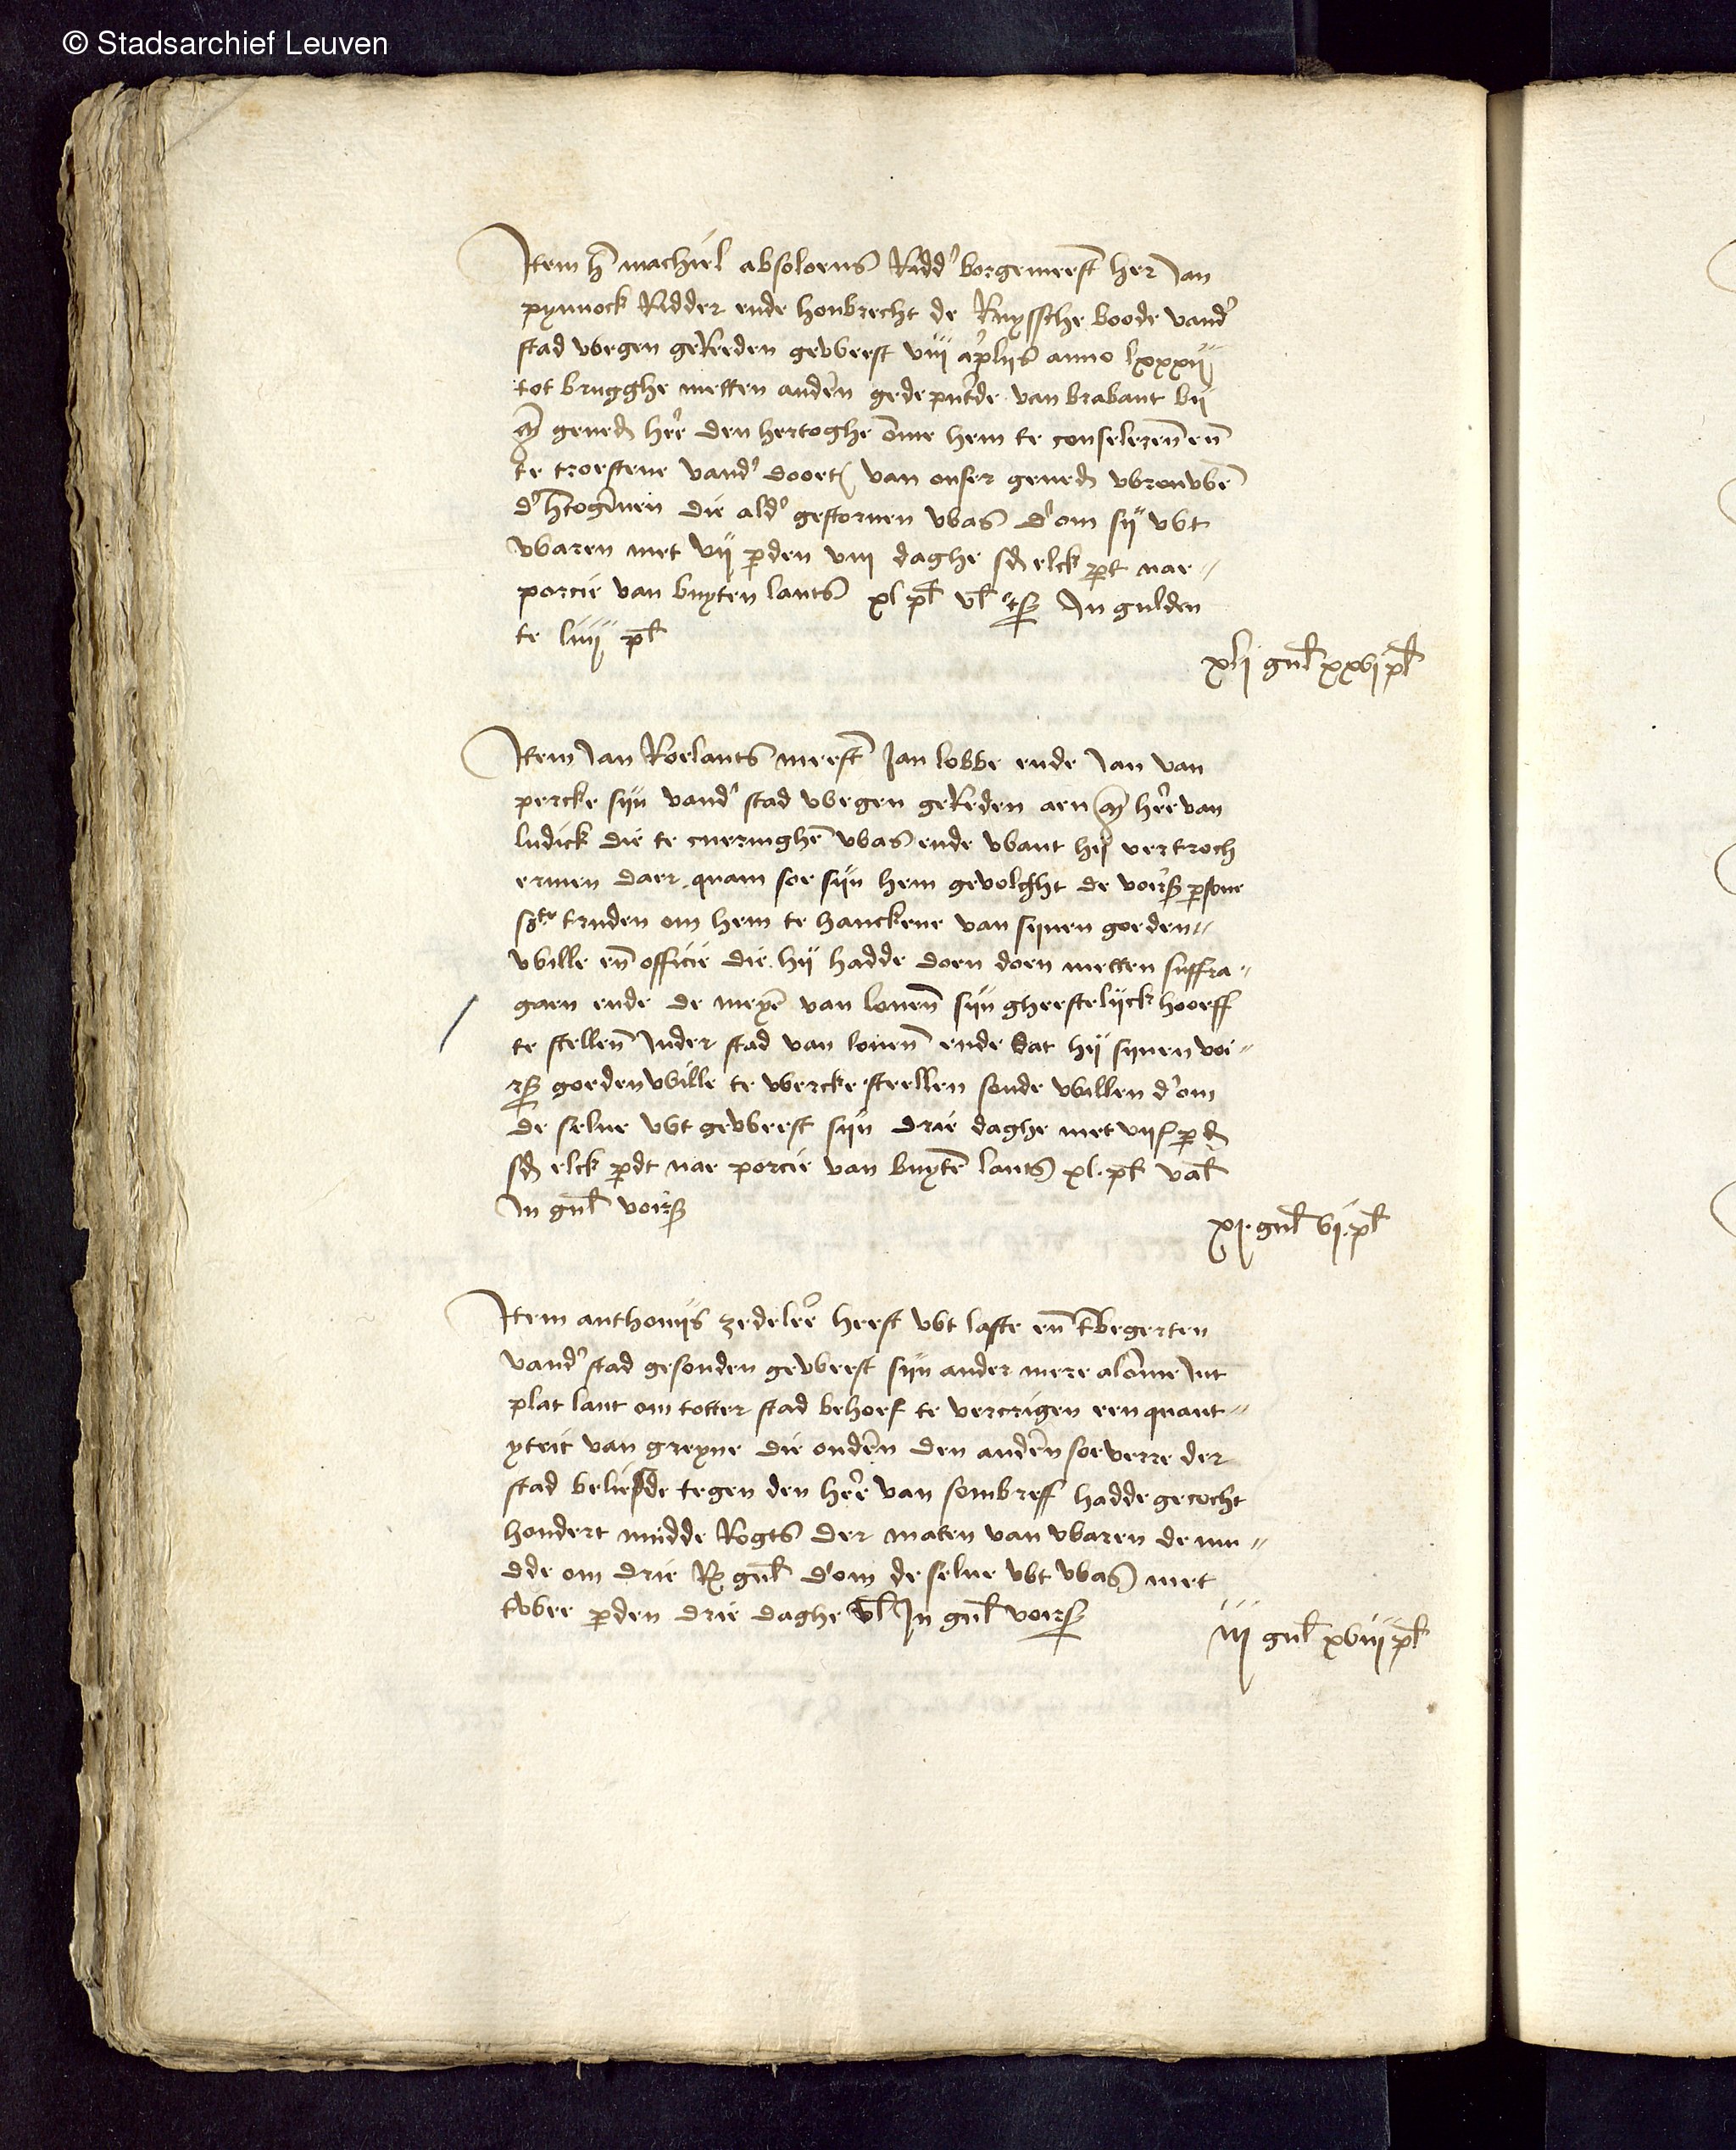 © Stadsarchief Leuven
Item h̄ machiel absoloens Ridd' borgermeest̄ her Jan
pynnock Ridder ende houbrecht de Ruyssche boode vand'
stad wegen gereden geweest viii ap'lis anno lxxxii
tot brugghe metten andēn gedeput'de van brabant bij
mȳ genedˢ hēre den hertoghe ōme hem te conselerēn eñ
te troestene vand' doot van onser genedˢ vrouwē
d' h̄toginnen die ald' gestorven was d'om sij wt
waren met vij p̱den viii daghe sdˢ elck p̱t nae
porcie van buyten lants xl pl̄ vl̄ In gulden
te liiij pl̄
xlj gul̄ xxvj pl̄
Item Jan Roelants meest̄ Jan lobbe ende Jan van
percke sijn vand' stad wegen gereden aen mȳ hēre van
ludick die te cueringhē was ende want hij vertroch
ermen daer quam soe sijn hem gevolcht de voirsˢ p̱sone
truden om hem te danckene van sijnen goeden
wille eñ officie die hij hadde doen doen metten suffra
gaen ende de meyē van lovēn sijn gheestelijck hooff
te stellēn Inder stad van lovēn ende dat hij sijnen voi
rsˢ goeden wille te wercke steellen soude willen d'om
de selve wt geweest sijn drie daghe met vijf p̱dˢ
sdˢ elck p̱dt nae porcie van buytē lants xl. pl̄ val̄
In gul̄ voirsˢ
xj. gul̄ vj. pl̄
Item anthonijs zedeleer heeft wt laste eñ tbegerten
vand' stad gesonden geweest sijn ander mere alōme Int
plat lant om totter stad behoef te vercrigen een quant
yteit van greyne die ondēn den andēn soe verre der
stad beliefde tegen den hēre van sombreff hadde gecocht
hondert midde Rogts der maten van waren de mu
dde om drie Rˢ gul̄ d'om de selve wt was met
twee p̱den drie daghe vl̄ In gul̄ voirsˢ
iij gul̄ xviij pl̄